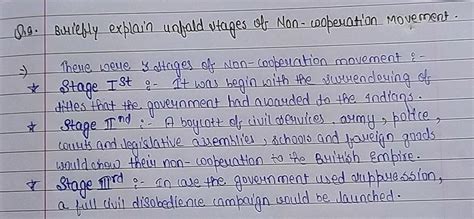 Q.9. Briefly explain unfold stages of Non-cooperation Movement.
→) There were 3 stages of Non-cooperation movement :-
★ Stage Ist :- It was begin with the surrendering of
titles that the government had awarded to the Indians.
★ Stage IInd :- A boycott of civil services, army, police,
courts and legislative assemblies, schools and foreign goods
would show their non-cooperation to the British Empire.
★ Stage IIIrd :- In case the government used suppression,
a full civil disobedience campaign would be launched.